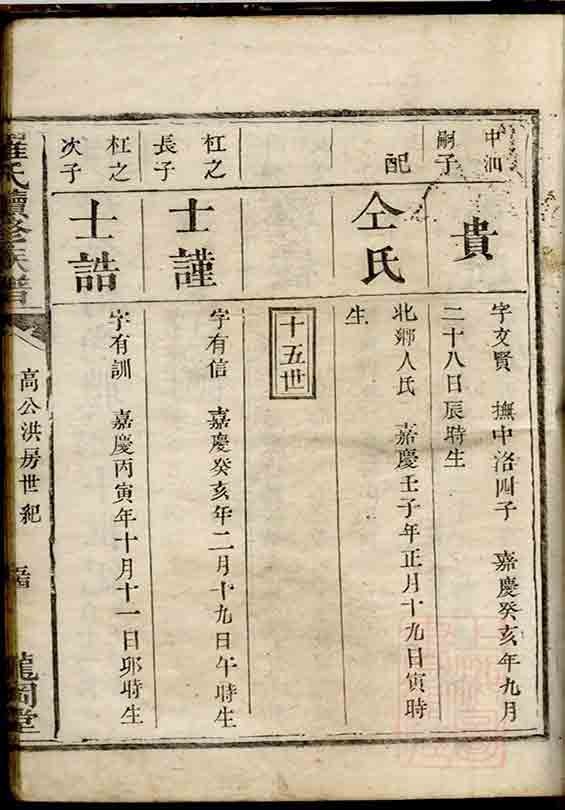 中洲
嗣子
貴
字文賢 撫中洛四子 嘉慶癸亥年九月
二十八日辰時生
配
仝氏
北鄉人氏 嘉慶壬子年正月十九日寅時
生
十五世
杠之
長子
士謹
字有信 嘉慶癸亥年二月十九日午時生
杠之
次子
士誥
字有訓 嘉慶丙寅年十月十一日卯時生
羅氏續修族譜
高公洪房世紀
龍岡堂